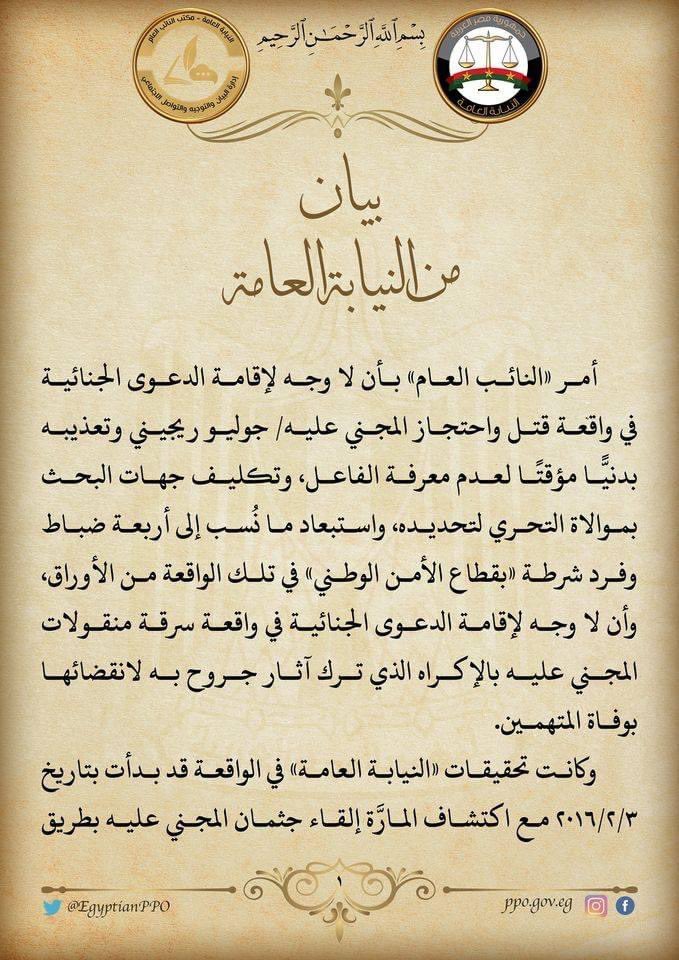 النيابة العامة - مكتب النائب العام
إدارة البيان والتوجيه والتواصل الاجتماعي
بِسْمِ ٱللَّهِ ٱلرَّحْمَٰنِ ٱلرَّحِيمِ
جمهورية مصر العربية
النيابة العامة
بيان
من النيابة العامة
أمر «النائب العام» بأن لا وجه لإقامة الدعوى الجنائية
في واقعة قتل واحتجاز المجني عليه/ جوليو ريجيني وتعذيبه
بدنيًّا مؤقتًا لعدم معرفة الفاعل، وتكليف جهات البحث
بموالاة التحري لتحديده، واستبعاد ما نُسب إلى أربعة ضباط
وفرد شرطة «بقطاع الأمن الوطني» في تلك الواقعة من الأوراق،
وأن لا وجه لإقامة الدعوى الجنائية في واقعة سرقة منقولات
المجني عليه بالإكراه الذي ترك آثار جروح به لانقضائها
بوفاة المتهمين.
وكانت تحقيقات «النيابة العامة» في الواقعة قد بدأت بتاريخ
٢٠١٦/٢/٣ مع اكتشاف المارَّة إلقاء جثمان المجني عليه بطريق
١
@EgyptianPPO
ppo.gov.eg